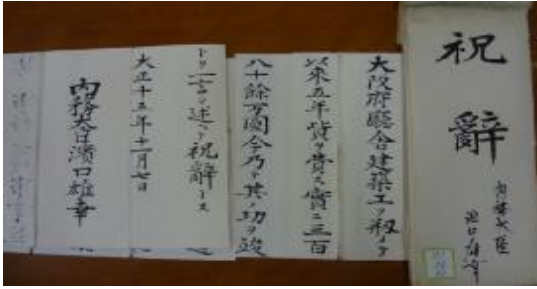 祝辭
内務大臣
濱口雄幸
大阪府廳合建築工ヲ剏メテ
以來五年貲ヲ費ス實ニ三百
八十餘万圓今乃チ其ノ功ヲ竣
一言ヲ述ヘテ祝辭トス
大正十五年十一月七日
内務大臣濱口雄幸